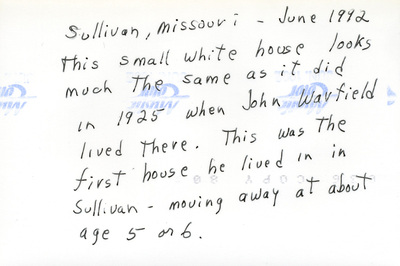 Sullivan, Missouri - June 1992
This small white house looks
much the same as it did
in 1925 when John Warfield
lived there. This was the
first house he lived in in
Sullivan - moving away at about
age 5 or 6.